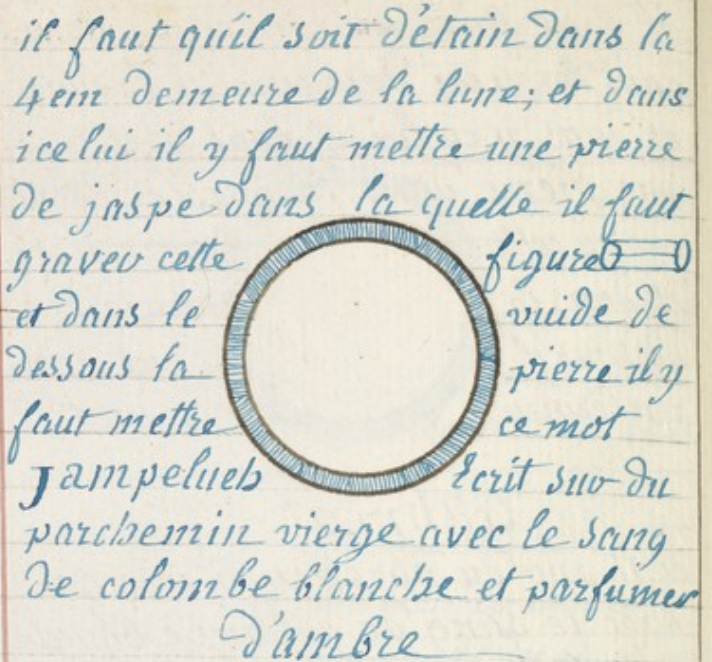 il faut qu'il soit d'étain dans la
4em demeure de la lune; et dans
icelui il y faut mettre une pierre
de jaspe dans la quelle il faut
graver cette figure
et dans le vuide de
dessous la pierre il y
faut mettre ce mot
Jampelueh Ecrit sur du
parchemin vierge avec le sang
de colombe blanche et parfumer
d'ambre